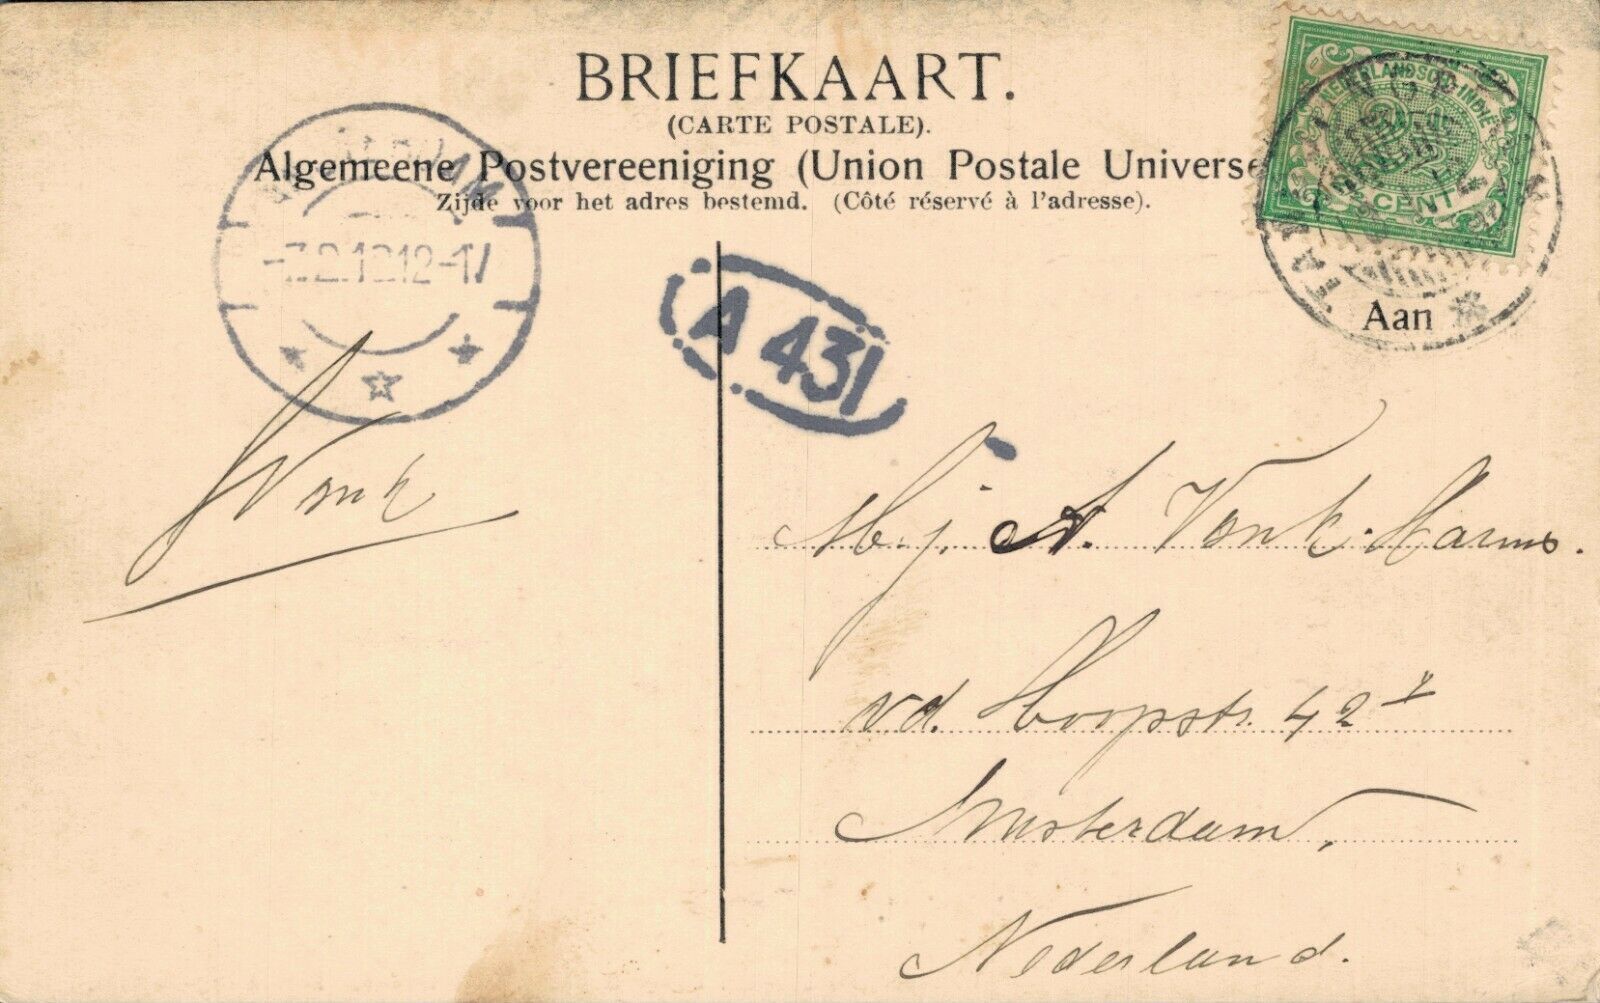 BRIEFKAART.
(CARTE POSTALE).
Algemeene Postvereeniging (Union Postale Universe
Zijde voor het adres bestemd. (Côté réservé à l'adresse).
NEDERLANDSCH-INDIË
CENT
-7.2.10 12-1V
A 431
Aan
Vonk
Mej. A. Vonk-Harms.
v.d. Hoopstr. 42 I
Amsterdam,
Nederland.